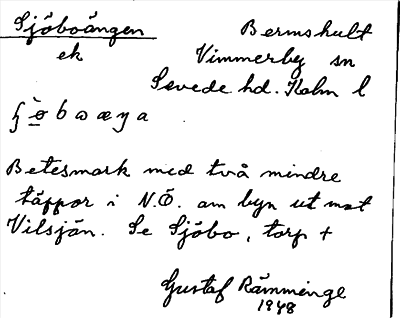 Sjöboängen Bermshult
ek Vimmerby sn
Sevede hd. Kalm l
Betesmark med två mindre
täppor i N.Ö. om byn ut mot
Vilsjön. Se Sjöbo, torp +
Gustaf Rämminge
1948